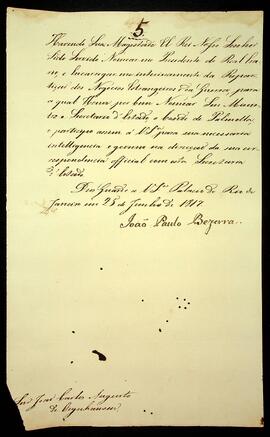 5
Havendo Sua Magestade El Rei Nosso Senhor
Sido Servido Nomear me Presidente do Real
e Encarregar me interinamente da Repar
tição dos Negocios Estrangeiros e da Guerra, para
a qual Houve por bem Nomear Seu Minis
tro e Secretario d'Estado o Conde de Palmella
e participo assim a V.S. para sua necessaria
intelligencia e governo na direcção da sua cor
respondencia official com esta Secretaria
d'Estado.
Deos Guarde a V.S. Palacio do Rio de
Janeiro em 28 de Junho de 1817.
João Paulo Bezerra.
Snr João Carlos Augusto
de Oeynhausen